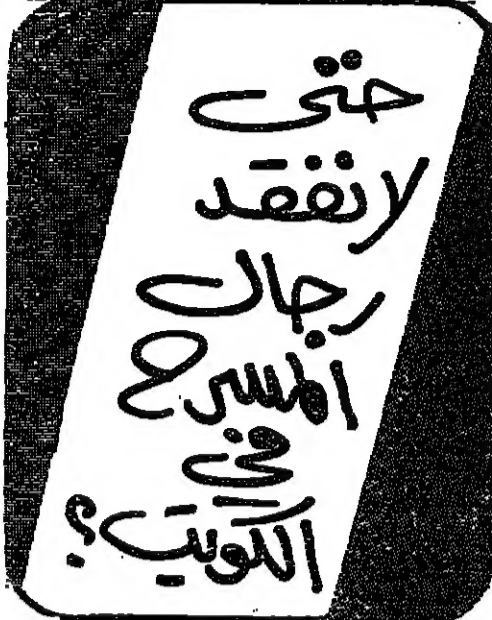 حتى
لا نفقد
رجال
المسرح
في
الكويت؟